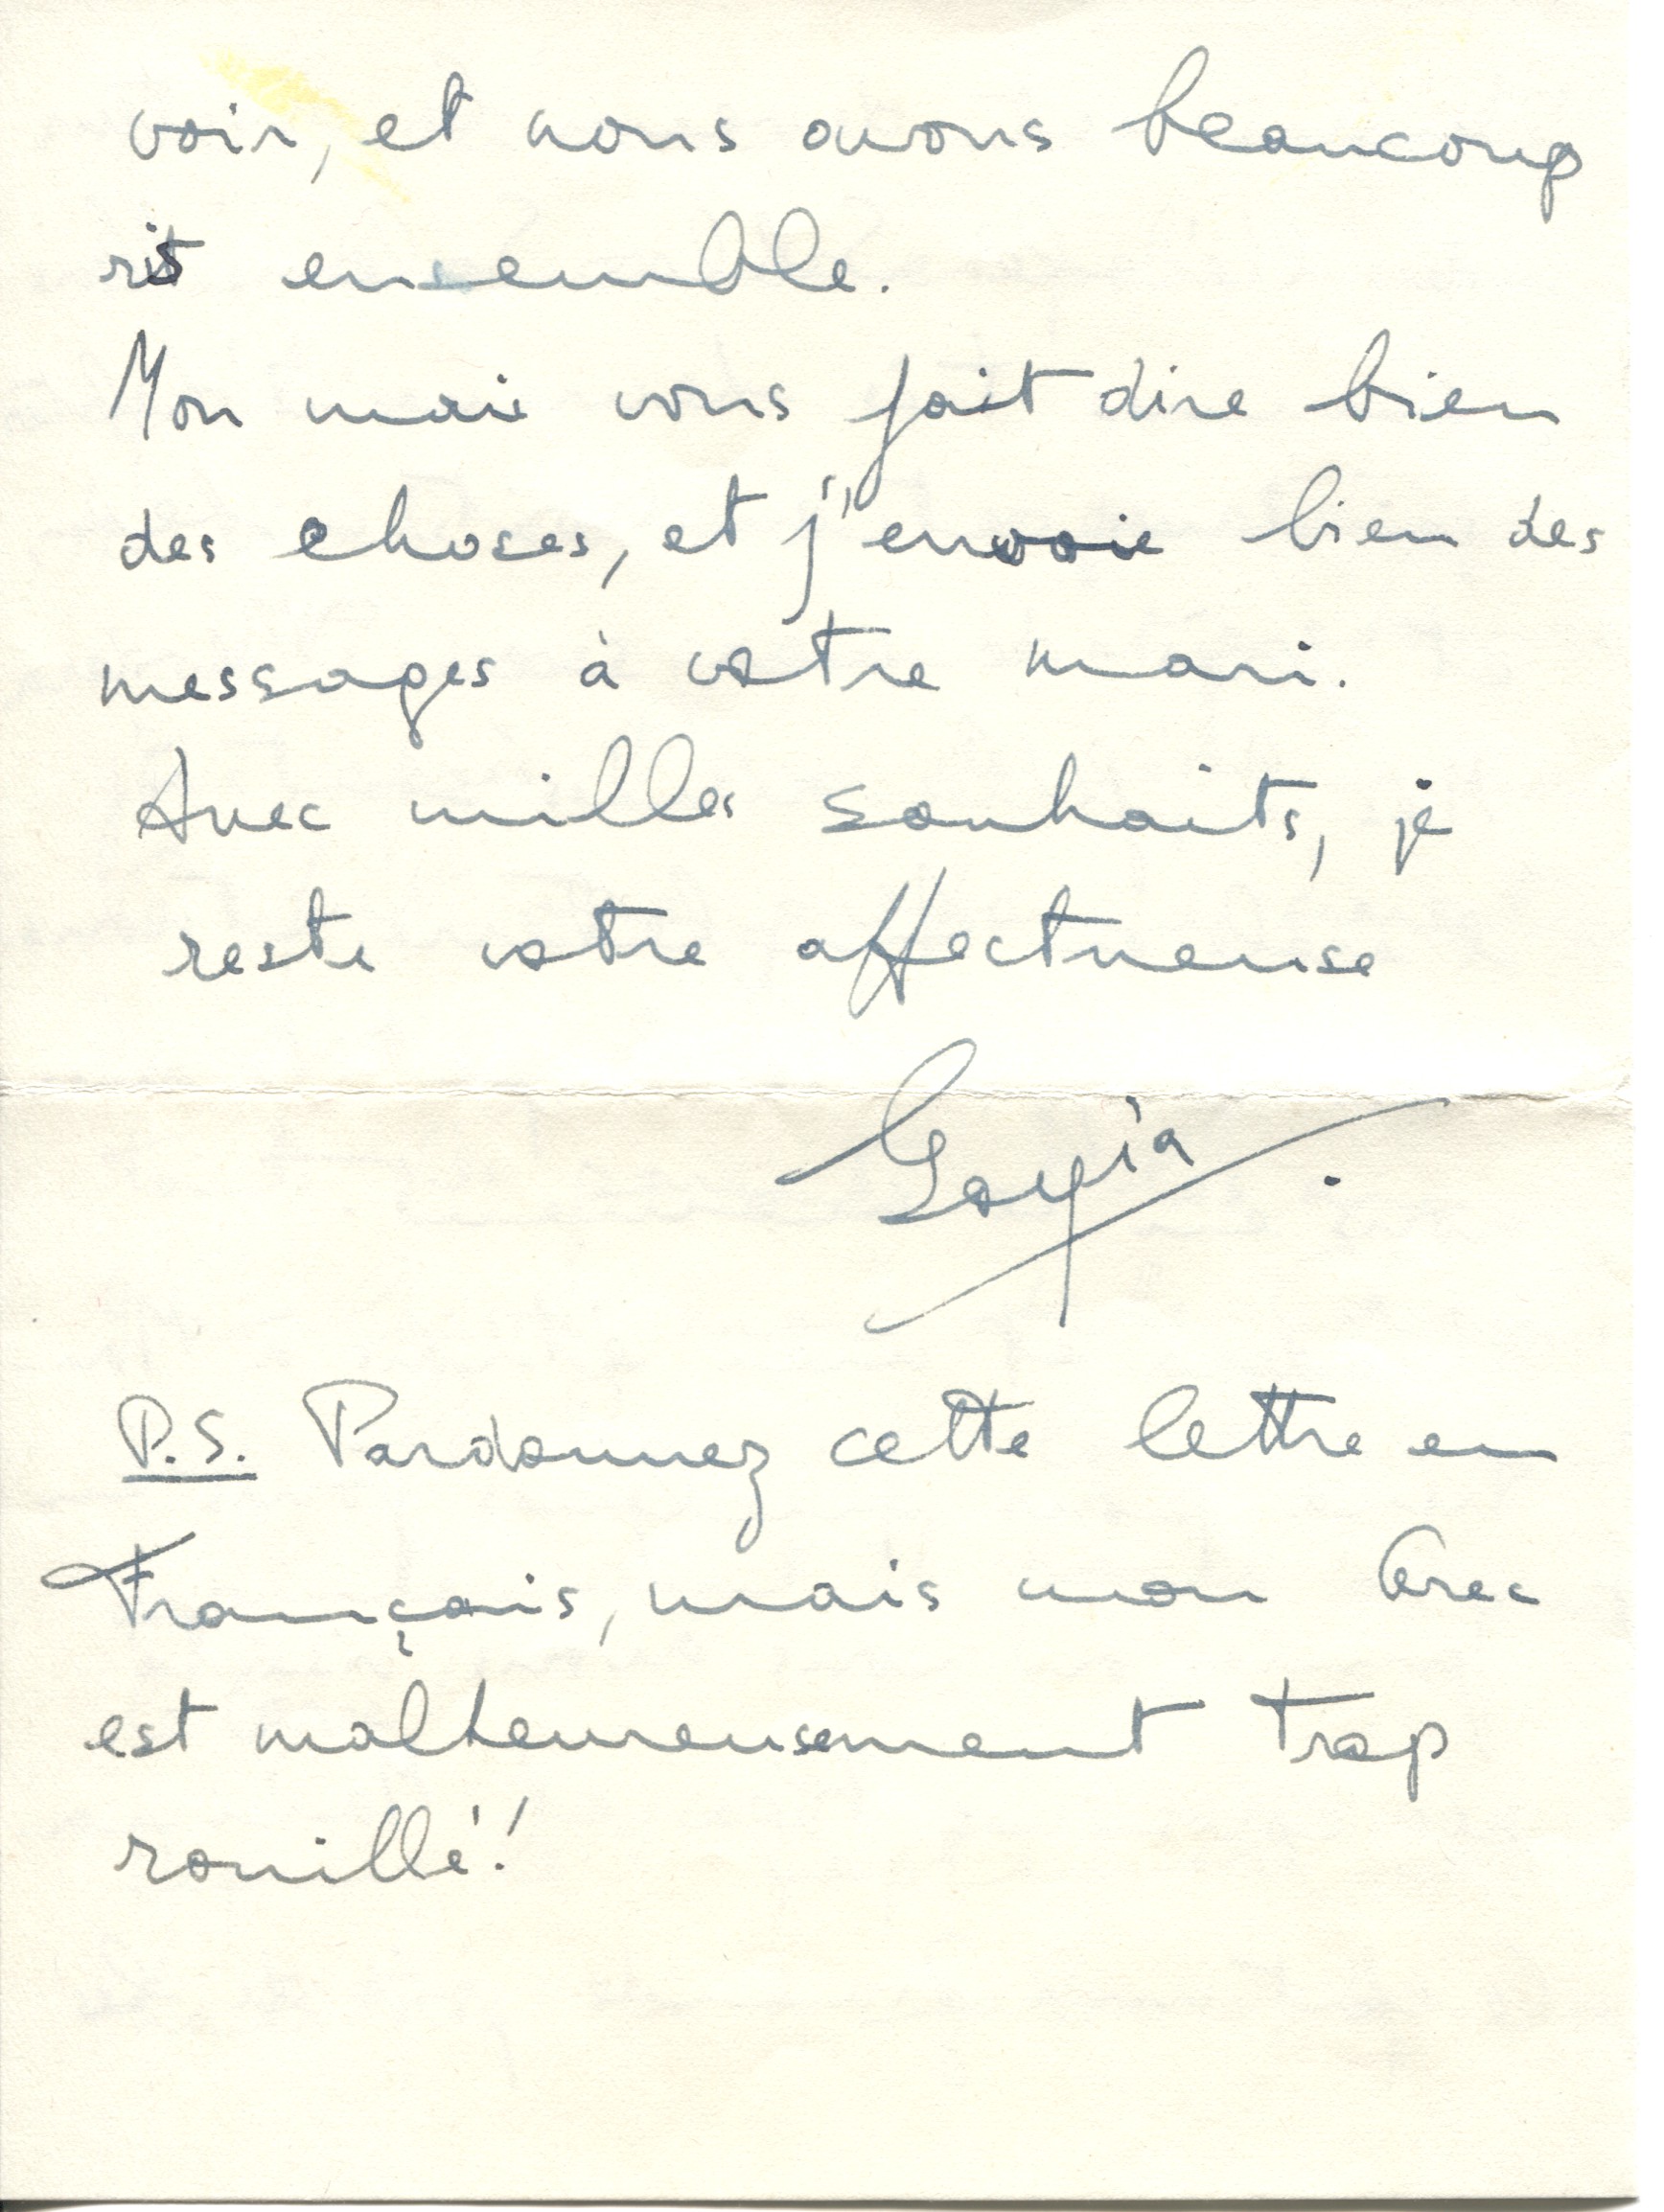 voir, et nous avons beaucoup
ris ensemble.
Mon mari vous fait dire bien
des choses, et j'envoie bien des
messages à votre mari.
Avec milles souhaits, je
reste votre affectueuse
P.S. Pardonnez cette lettre en
Français, mais mon Grec
est malheureusement trop
rouillé!